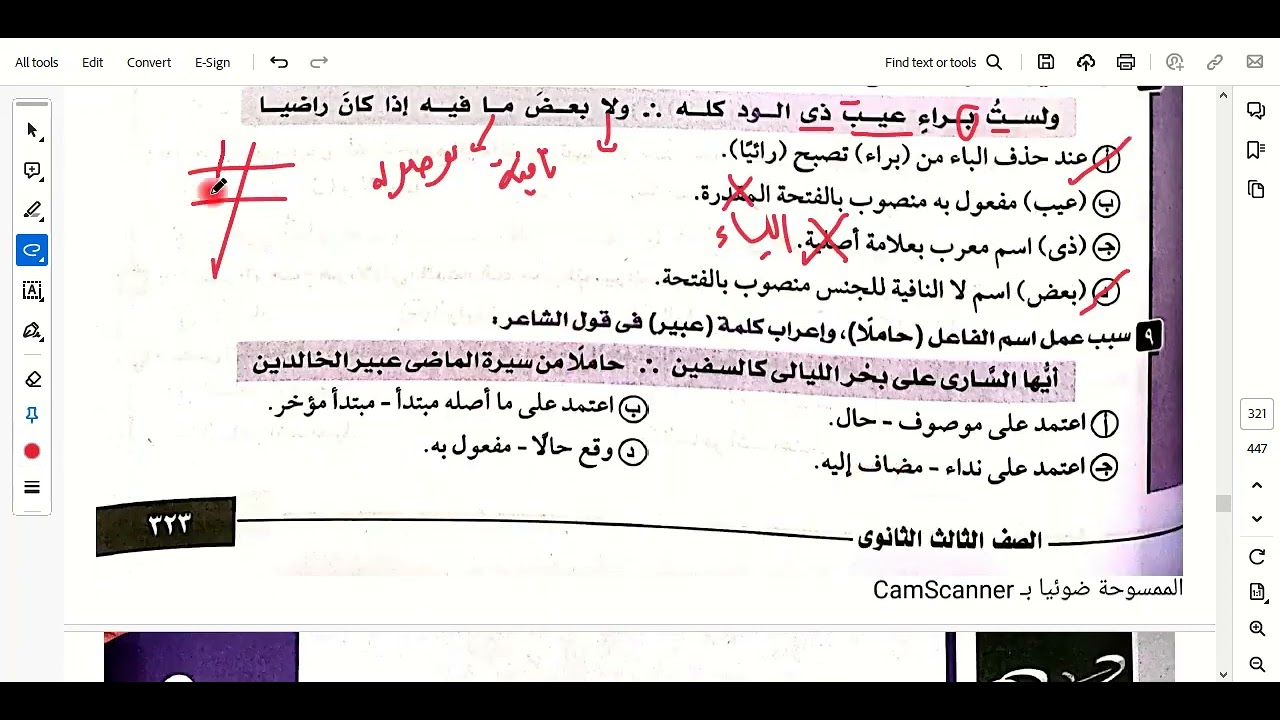 All tools Edit Convert E-Sign Find text or tools
ولستُ بـراءٍ عيـبَ ذى الـود كلـه ∴ ولا بعـضَ مـا فيـه إذا كانَ راضيـا
نافية - موصولة
أ عند حذف الباء من (براء) تصبح (رائيًا).
ب (عيب) مفعول به منصوب بالفتحة المقدرة.
جـ (ذى) اسم معرب بعلامة أصلية. الياء
د (بعض) اسم لا النافية للجنس منصوب بالفتحة.
٩ سبب عمل اسم الفاعل (حاملًا)، وإعراب كلمة (عبير) فى قول الشاعر:
أيُّها السَّارى على بحْر الليالى كالسفين ∴ حاملًا من سيرة الماضى عبير الخالدين
أ اعتمد على موصوف - حال. ب اعتمد على ما أصله مبتدأ - مبتدأ مؤخر.
جـ اعتمد على نداء - مضاف إليه. د وقع حالًا - مفعول به.
321
447
الصف الثالث الثانوى ٣٢٣
الممسوحة ضوئيا بـ CamScanner